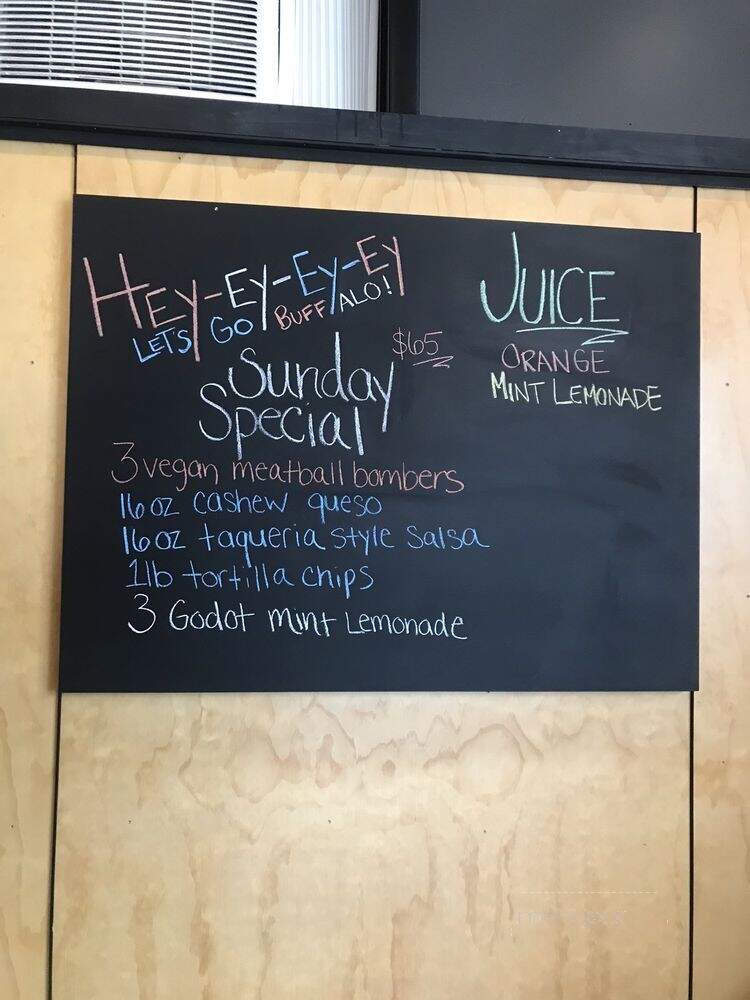 HEY-EY-EY-EY
LET'S GO BUFFALO!
$65
Sunday
Special
3 vegan meatball bombers
16 oz cashew queso
16 oz taqueria style salsa
1lb tortilla chips
3 Godot mint Lemonade
JUICE
ORANGE
MINT LEMONADE